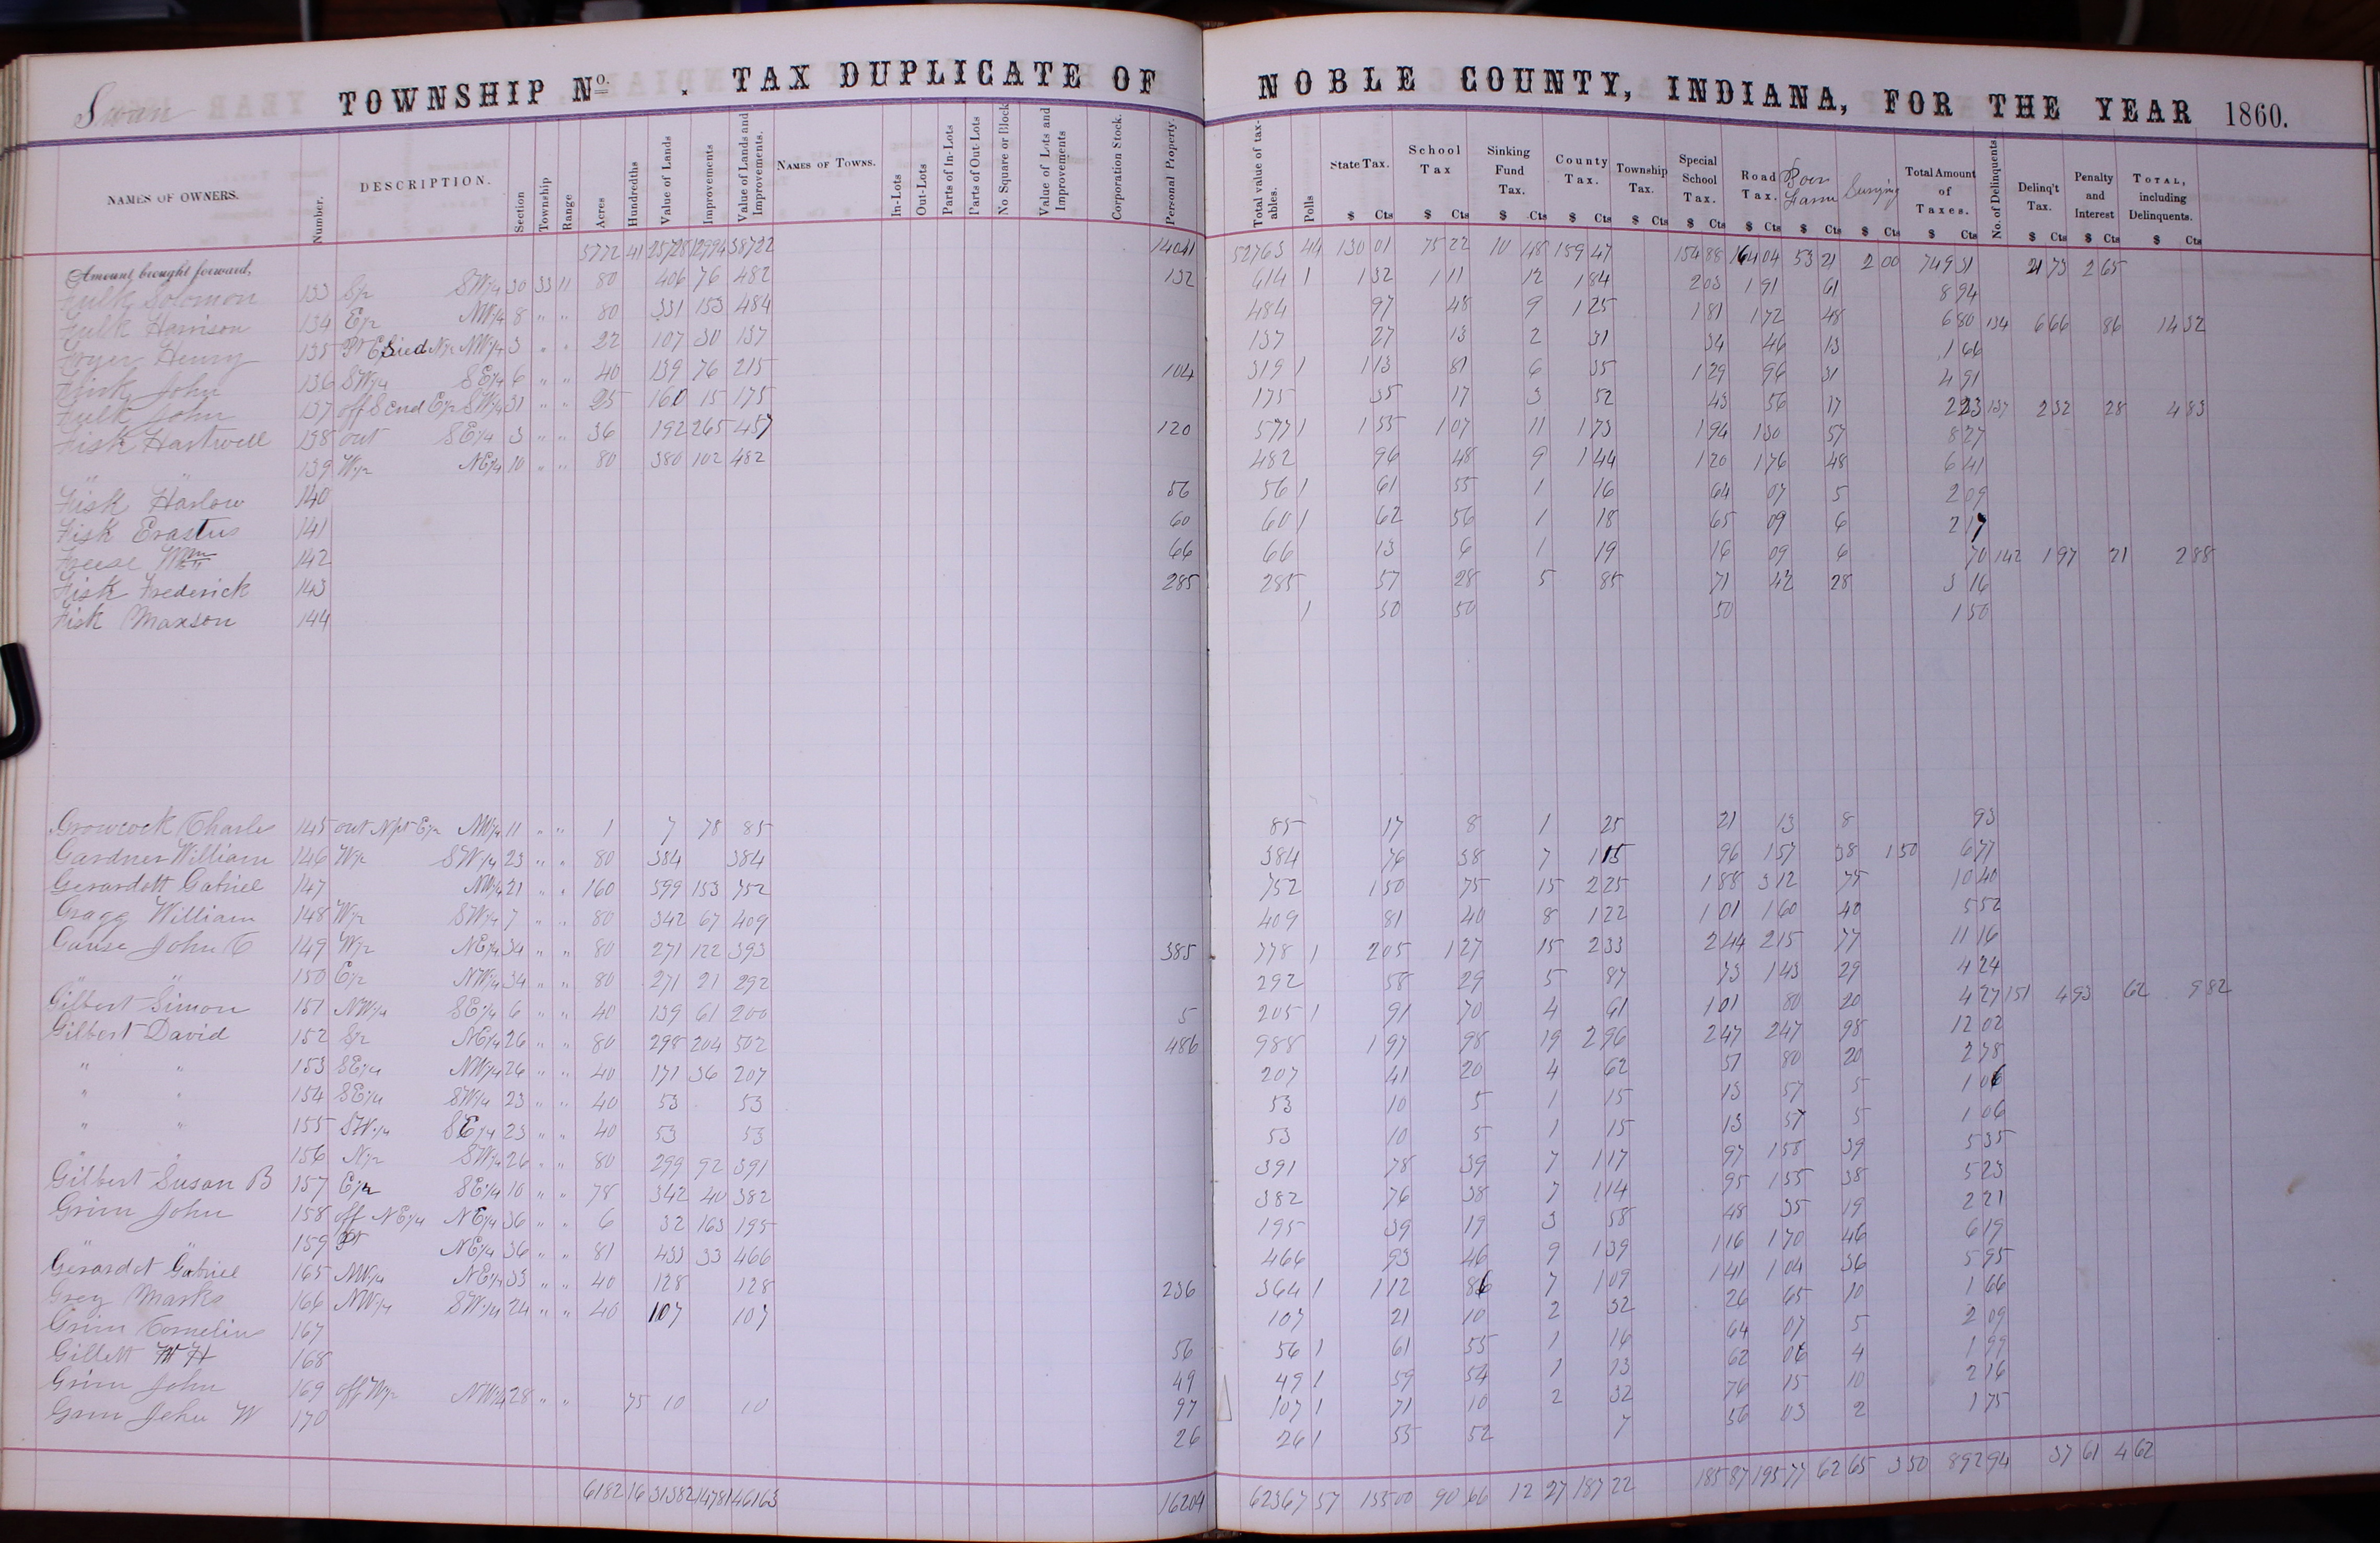 Swan TOWNSHIP No. . TAX DUPLICATE OF NOBLE COUNTY, INDIANA, FOR THE YEAR 1860.
NAMES OF OWNERS. Number. DESCRIPTION. Section Township Range Acres Hundredths Value of Lands Improvements Value of Lands and Improvements. NAMES OF TOWNS. In-Lots Out-Lots Parts of In-Lots Parts of Out-Lots No Square or Block Value of Lots and Improvements Corporation Stock. Personal Property. Total value of taxables. Polls State Tax. School Tax Sinking Fund Tax. County Tax. Township Tax. Special School Tax. Road Tax. Poor Farm Total Amount of Taxes. No. of Delinquents Delinq't Tax. Penalty and Interest TOTAL, including Delinquents.
$ Cts $ Cts $ Cts $ Cts $ Cts $ Cts $ Cts $ Cts $ Cts $ Cts $ Cts $ Cts $ Cts
Amount brought forward, 5772 41 25728 12994 38722 14041 52763 44 130 01 75 22 10 48 159 47 154 88 164 04 53 21 2 00 749 31 21 73 2 65
Fulk Solomon 133 S1/2 SW1/4 30 33 11 80 406 76 482 132 614 1 1 32 1 11 12 1 84 2 03 1 91 61 8 94
Fulk Harrison 134 E1/2 NW1/4 8 " " 80 331 153 484 484 97 48 9 1 25 1 81 1 72 48 6 80 134 6 66 86 14 32
Foyer Henry 135 Pt E Sied N1/2 NW1/4 3 " " 22 107 30 137 137 27 13 2 31 34 46 13 1 66
Fink John 136 SW1/4 SE1/4 6 " " 40 139 76 215 104 319 1 1 13 81 6 35 1 29 96 31 4 91
Fulk John 137 off S end E1/2 SW1/4 31 " " 25 160 15 175 175 35 17 3 52 43 56 17 2 23 137 2 32 28 4 83
Fisk Hartwell 138 out SE1/4 3 " " 36 192 265 457 120 577 1 1 55 1 07 11 1 73 1 94 1 30 57 8 27
" " 139 W1/2 NE1/4 10 " " 80 380 102 482 482 96 48 9 1 44 1 20 1 76 48 6 41
Fisk Harlow 140 56 56 1 61 55 1 16 64 07 5 2 09
Fisk Erastus 141 60 60 1 62 56 1 18 65 09 6 2 17
Freese Wm 142 66 66 13 6 1 19 16 09 6 70 142 1 97 21 2 88
Fisk Frederick 143 285 285 57 28 5 85 71 42 28 3 16
Fisk Maxson 144 1 50 50 50 1 50
Growcock Charles 145 out N pt E1/2 NW1/4 11 " " 1 7 78 85 85 17 8 1 25 21 13 8 93
Gardner William 146 W1/2 SW1/4 23 " " 80 384 384 384 76 38 7 1 15 96 1 57 38 1 50 6 77
Gerardott Gabriel 147 NW1/4 21 " " 160 599 153 752 752 1 50 75 15 2 25 1 88 3 12 75 10 40
Gragg William 148 W1/2 SW1/4 7 " " 80 342 67 409 409 81 40 8 1 22 1 01 1 60 40 5 52
Gause John C 149 W1/2 NE1/4 34 " " 80 271 122 393 385 778 1 2 05 1 27 15 2 33 2 44 2 15 77 11 16
" " 150 E1/2 NW1/4 34 " " 80 271 21 292 292 58 29 5 87 73 1 43 29 4 24
Gilbert Simon 151 NW1/4 SE1/4 6 " " 40 139 61 200 5 205 1 91 70 4 61 1 01 80 20 4 27 151 4 93 62 9 82
Gilbert David 152 S1/2 NE1/4 26 " " 80 298 204 502 486 988 1 97 98 19 2 96 2 47 2 47 98 12 02
" " 153 SE1/4 NW1/4 26 " " 40 171 36 207 207 41 20 4 62 51 80 20 2 78
" " 154 SE1/4 SW1/4 23 " " 40 53 53 53 10 5 1 15 13 57 5 1 06
" " 155 SW1/4 SE1/4 23 " " 40 53 53 53 10 5 1 15 13 57 5 1 06
" " 156 N1/2 SW1/4 26 " " 80 299 92 391 391 78 39 7 1 17 97 1 58 39 5 35
Gilbert Susan B 157 E1/2 SE1/4 10 " " 78 342 40 382 382 76 38 7 1 14 95 1 55 38 5 23
Grim John 158 off NE1/4 NE1/4 36 " " 6 32 163 195 195 39 19 3 58 48 35 19 2 21
" " 159 Pt NE1/4 36 " " 81 433 33 466 466 93 46 9 1 39 1 16 1 70 46 6 19
Gerardot Gabriel 165 NW1/4 NE1/4 33 " " 40 128 128 236 364 1 1 12 86 7 1 09 1 41 1 04 36 5 95
Grey Marks 166 NW1/4 SW1/4 24 " " 40 107 107 107 21 10 2 32 26 65 10 1 66
Grim Cornelius 167 56 56 1 61 55 1 16 64 07 5 2 09
Gillett H 168 49 49 1 59 54 1 13 62 06 4 1 99
Grim John 169 off W1/2 NW1/4 28 " " 75 10 10 97 107 1 71 10 2 32 76 15 10 2 16
John W 170 26 26 1 55 52 7 56 03 2 1 75
6182 16 31382 14781 46163 16204 62367 57 155 00 90 66 12 27 187 22 185 87 195 77 62 65 3 50 892 94 37 61 4 62